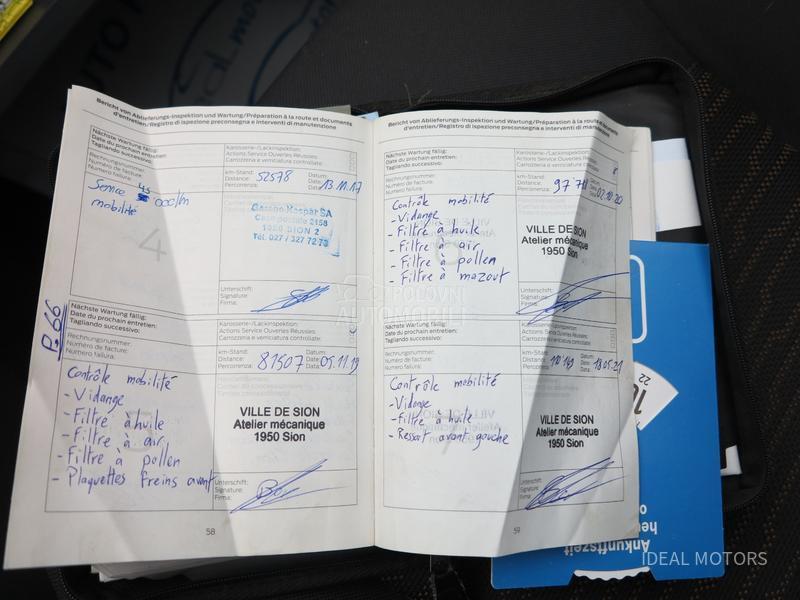 Bericht von Ablieferungs-Inspektion und Wartung/Préparation à la route et documents
d'entretien/Registro di ispezione preconsegna e interventi di manutenzione
Nächste Wartung fällig:
Date du prochain entretien:
Tagliando successivo:
Karosserie-/Lackinspektion:
Actions Service Ouvertes Réussies:
Carrozzeria e verniciatura controllate:
Rechnungsnummer:
Numéro de facture:
Numero fattura:
km-Stand:
Distance:
Percorrenza:
52578
Datum:
Date:
Data:
13.11.17
Service 45 000/km
mobilité
4
Garage Kaspar SA
Case postale 2158
1950 SION 2
Tél. 027 / 327 72 73
Unterschrift:
Signature:
Firma:
P.66
Nächste Wartung fällig:
Date du prochain entretien:
Tagliando successivo:
Karosserie-/Lackinspektion:
Actions Service Ouvertes Réussies:
Carrozzeria e verniciatura controllate:
Rechnungsnummer:
Numéro de facture:
Numero fattura:
km-Stand:
Distance:
Percorrenza:
81507
Datum:
Date:
Data:
05.11.19
Contrôle mobilité
- Vidange
- Filtre à huile
- Filtre à air
- Filtre à pollen
- Plaquettes freins avant
VILLE DE SION
Atelier mécanique
1950 Sion
Unterschrift:
Signature:
Firma:
58
Bericht von Ablieferungs-Inspektion und Wartung/Préparation à la route et documents
d'entretien/Registro di ispezione preconsegna e interventi di manutenzione
Nächste Wartung fällig:
Date du prochain entretien:
Tagliando successivo:
Karosserie-/Lackinspektion:
Actions Service Ouvertes Réussies:
Carrozzeria e verniciatura controllate:
Rechnungsnummer:
Numéro de facture:
Numero fattura:
km-Stand:
Distance:
Percorrenza:
Datum:
Date:
Data:
02.10.20
Contrôle mobilité
- Vidange
- Filtre à huile
- Filtre à air
- Filtre à pollen
- Filtre à mazout
VILLE DE SION
Atelier mécanique
1950 Sion
Unterschrift:
Signature:
Firma:
Nächste Wartung fällig:
Date du prochain entretien:
Tagliando successivo:
Karosserie-/Lackinspektion:
Actions Service Ouvertes Réussies:
Carrozzeria e verniciatura controllate:
Rechnungsnummer:
Numéro de facture:
Numero fattura:
km-Stand:
Distance:
Percorrenza:
Datum:
Date:
Data:
18.05.21
Contrôle mobilité
- Vidange
- Filtre à huile
- Ressort avant gauche
VILLE DE SION
Atelier mécanique
1950 Sion
Unterschrift:
Signature:
Firma:
59
POLOVNI
AUTOMOBILI
22
Ankunftszeit
IDEAL MOTORS